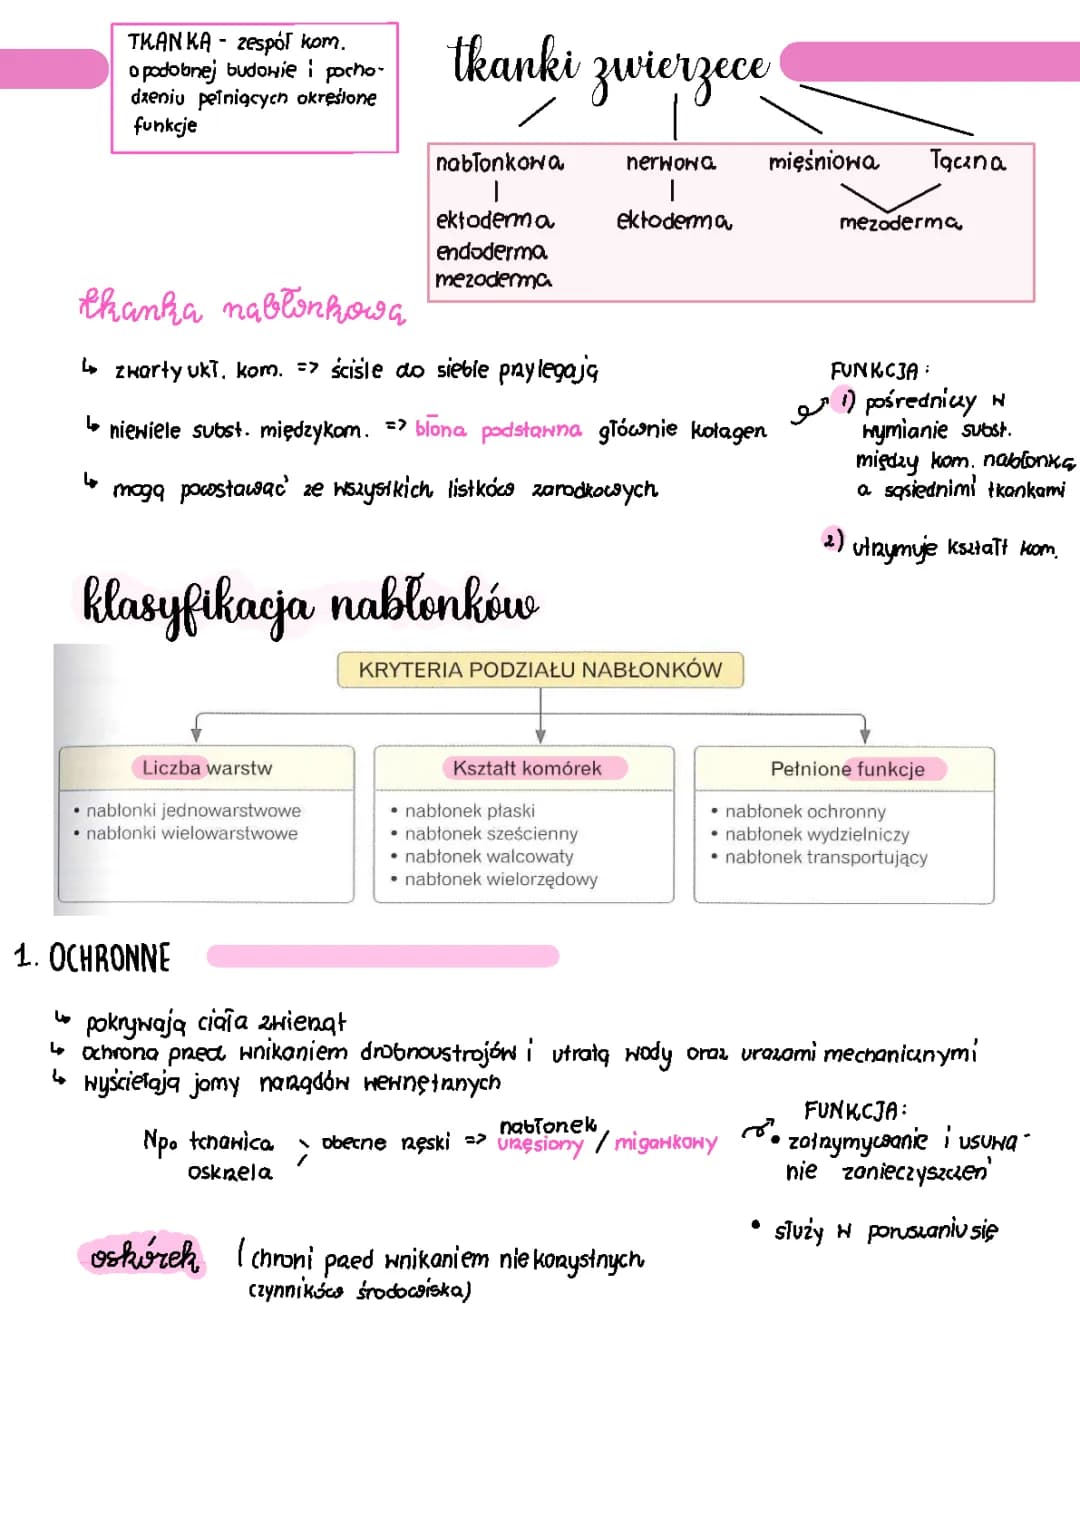 TKANKA - zespół kom.
o podobnej budowie i pocho-
dzeniu pełniących określone
funkcje
tkanki zwierzęce
nabłonkowa
ektoderma
endoderma
mezoderma
nerwowa
ektoderma
mięśniowa łączna
mezoderma
tkanka nabłonkowa
↳ zwarty ukł. kom. => ściśle do siebie przylegają
↳ niewiele subst. międzykom. => błona podstawna głównie kolagen
↳ mogą powstawać ze wszystkich listków zarodkowych
FUNKCJA:
1) pośredniczy w
wymianie subst.
między kom. nabłonka
a sąsiednimi tkankami
2) utrzymuje kształt kom.
klasyfikacja nabłonków
KRYTERIA PODZIAŁU NABŁONKÓW
Liczba warstw
• nabłonki jednowarstwowe
• nabłonki wielowarstwowe
Kształt komórek
• nabłonek płaski
• nabłonek sześcienny
• nabłonek walcowaty
• nabłonek wielorzędowy
Pełnione funkcje
• nabłonek ochronny
• nabłonek wydzielniczy
• nabłonek transportujący
1. OCHRONNE
↳ pokrywają ciała zwierząt
↳ ochrona przed wnikaniem drobnoustrojów i utratą wody oraz urazami mechanicznymi
↳ wyściełają jamy narządów wewnętrznych
Np. tchawica, obecne rzęski => nabłonek urzęsiony / migawkowy
oskrzela
FUNKCJA:
• zatrzymywanie i usuwa-
nie zanieczyszczeń
• służy w poruszaniu się
oskórek (chroni przed wnikaniem niekorzystnych
czynników środowiska)